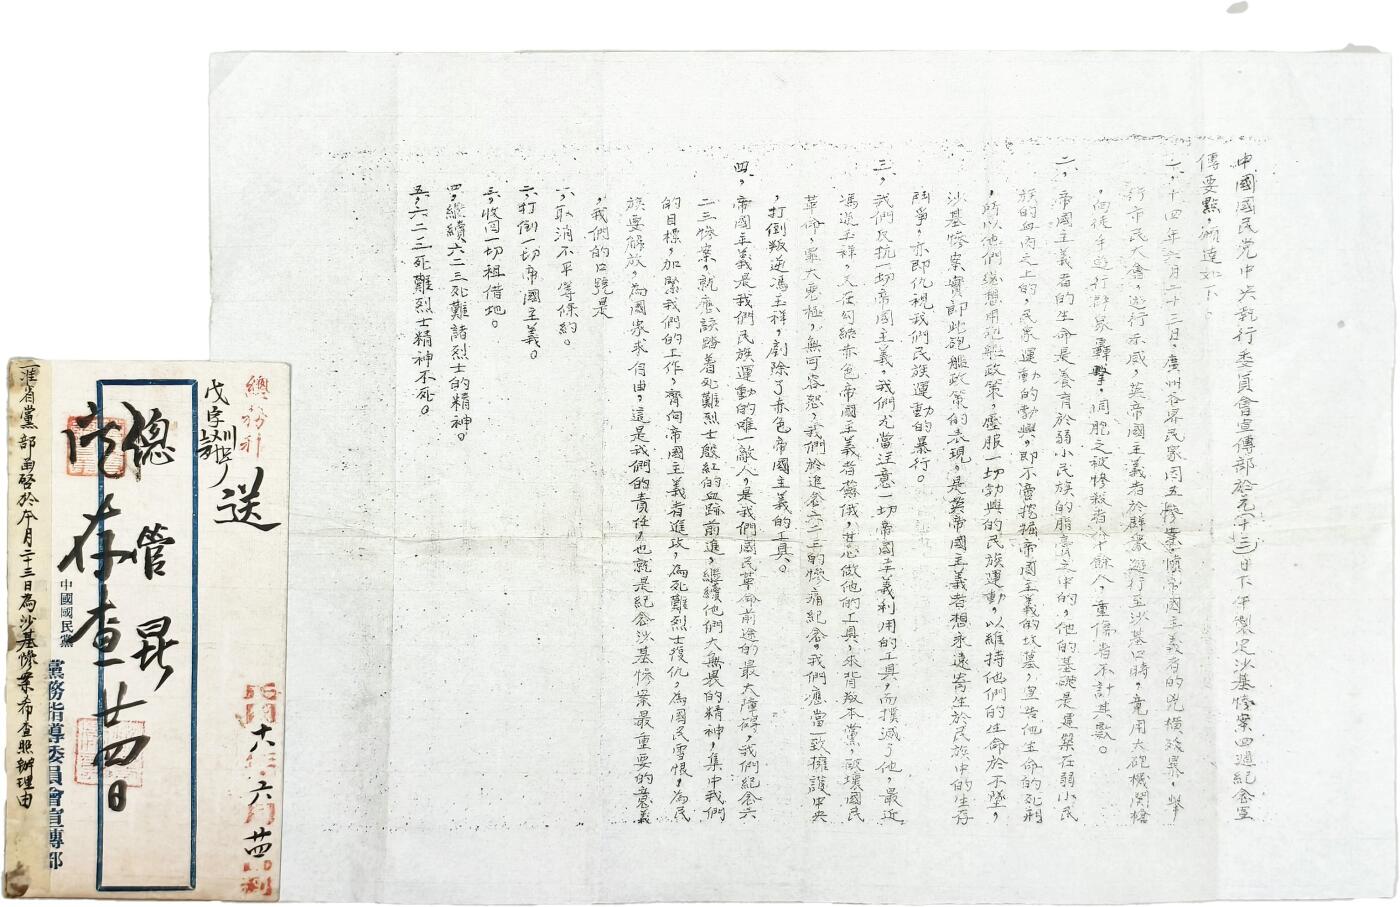 中國國民党中央執行委員會宣傳部於元十三日下午製定沙基慘案四週紀念宣
傳要點，頒達如下。
一，十四年六月二十三日，廣州各界民衆因五慘案，憤帝國主義者的兇橫殘暴，舉
行市民大會，遊行示威，英帝國主義者於群衆遊行至沙基口時，竟用大砲機関槍
，向徒手遊行群衆轟擊，同胞之被慘殺者八十餘人，重傷者不計其數。
二，帝國主義者的生命是養育於弱小民族的脂膏之中的，他的基礎是建築在弱小民
族的血肉之上的，民衆運動的勃興，即不啻挖掘帝國主義的坟墓，宣告他生命的死刑
，所以他們總想用砲艦政策，壓服一切勃興的民族運動，以維持他們的生命於不墜，
沙基慘案實即此砲艦政策的表現，是英帝國主義者想永遠寄生於民族中的生存
鬥爭，亦即仇視我們民族運動的暴行。
三，我們反抗一切帝國主義，我們尤當注意一切帝國主義利用的工具，而撲滅了他，最近
馮逆玉祥，又在勾結赤色帝國主義者蘇俄，甘心做他的工具，來背叛本黨，破壞國民
革命，罪大惡極，無可容恕，我們於追念六二三的慘痛紀念，我們應當一致擁護中央
，打倒叛逆馮玉祥，剷除了赤色帝國主義的工具。
四，帝國主義是我們民族運動的唯一敵人，是我們國民革命前途的最大障碍，我們紀念六
二三慘案，就應該踏着死難烈士殷紅的血跡前進，繼續他們大無畏的精神，集中我們
的目標，加緊我們的工作，齊向帝國主義者進攻，為死難烈士復仇，為國民雪恨，為民
族要解放，為國家求自由，這是我們的責任，也就是紀念沙基慘案最重要的意義
，我們的口號是
一，取消不平等條約。
二，打倒一切帝國主義。
三，收回一切租借地。
四，繼續六二三死難諸烈士的精神。
五，六二三死難烈士精神不死。
總務科
戊字
送
民國十八年六月廿四日到
總管晁
存查廿四日
中國國民黨
黨務指導委員會宣傳部
准省黨部函啓於本月二十三日為沙基慘案希查照辦理由